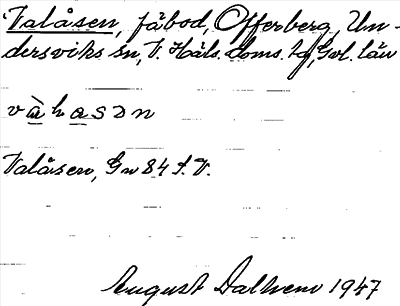 Valåsen, fäbod, Offerberg, Un-
dersviks sn, V. Häls. doms. hg, Gvl. län
vàhasɔn
Valåsen, Gn 84 f. V.
August Dalhem 1947